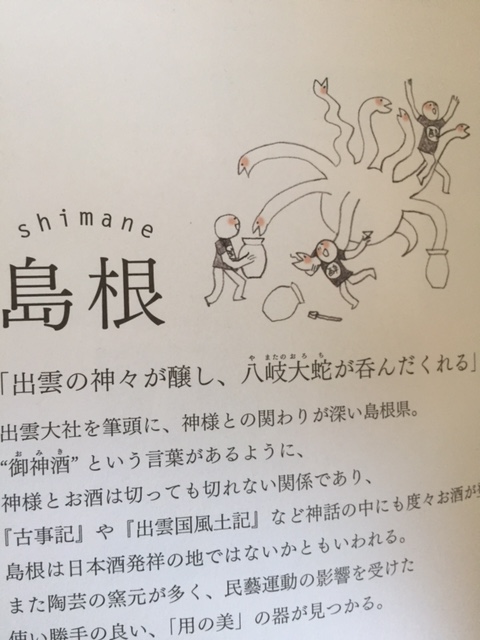 shimane
島根
「出雲の神々が醸し、八岐大蛇が呑んだくれる」
出雲大社を筆頭に、神様との関わりが深い島根県。
“御神酒” という言葉があるように、
神様とお酒は切っても切れない関係であり、
『古事記』や『出雲国風土記』など神話の中にも度々お酒が
島根は日本酒発祥の地ではないかともいわれる。
また陶芸の窯元が多く、民藝運動の影響を受けた
使い勝手の良い、「用の美」の器が見つかる。